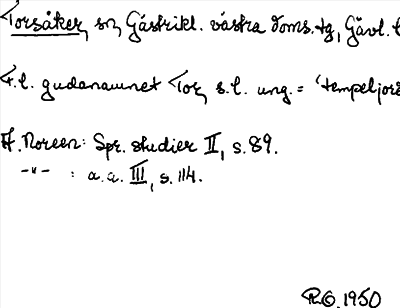 Torsåker, sn, Gästrikl. västra doms.tg, Gävl.
F.l. gudanamnet Tor, s.l. ung. = 'tempeljor
A. Noreen: Spr. studier II, s. 89.
-"- : a.a. III, s. 114.
R.G. 1950